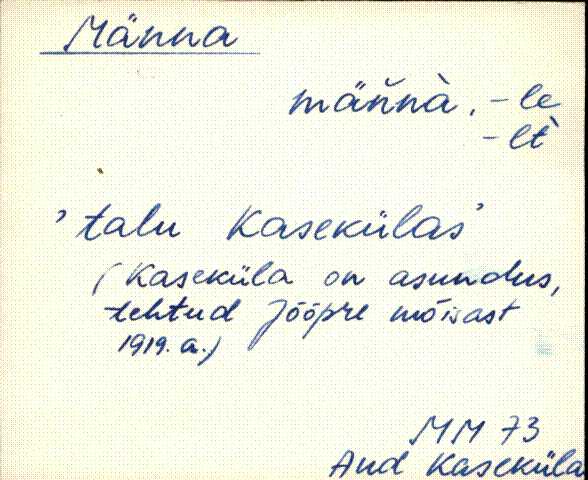 Männa
mäňnà, -le
-lt̀
'talu Kasekülas'
(Kaseküla on asundus,
tehtud Jõõpre mõisast
1919. a.)
MM 73
Aud Kaseküla